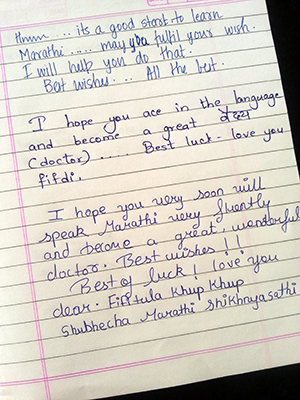 Hmm.... its a good start to learn
Marathi..... may you fulfil your wish.
I will help you do that.
Best wishes.... All the best.
I hope you ace in the language
and become a great वैद्य
(doctor)..... Best luck - love you
fifdi.
I hope you very soon will
speak Marathi very fluently
and become a great, wonderful
doctor. Best wishes!!
Best of luck! love you
dear. Fifi tula khup khup
Shubhecha Marathi Shikhnyasathi